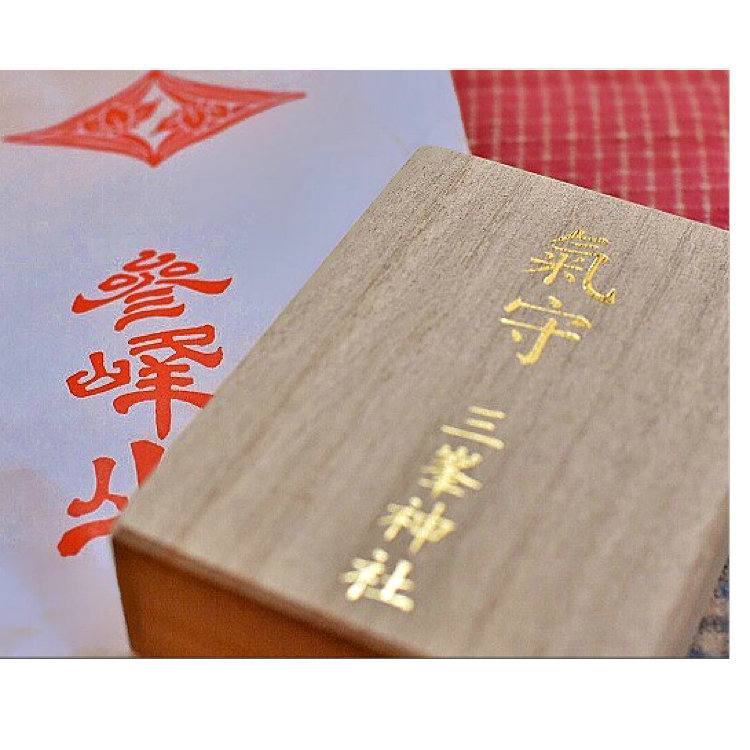 氣守
三峯神社
參峰山